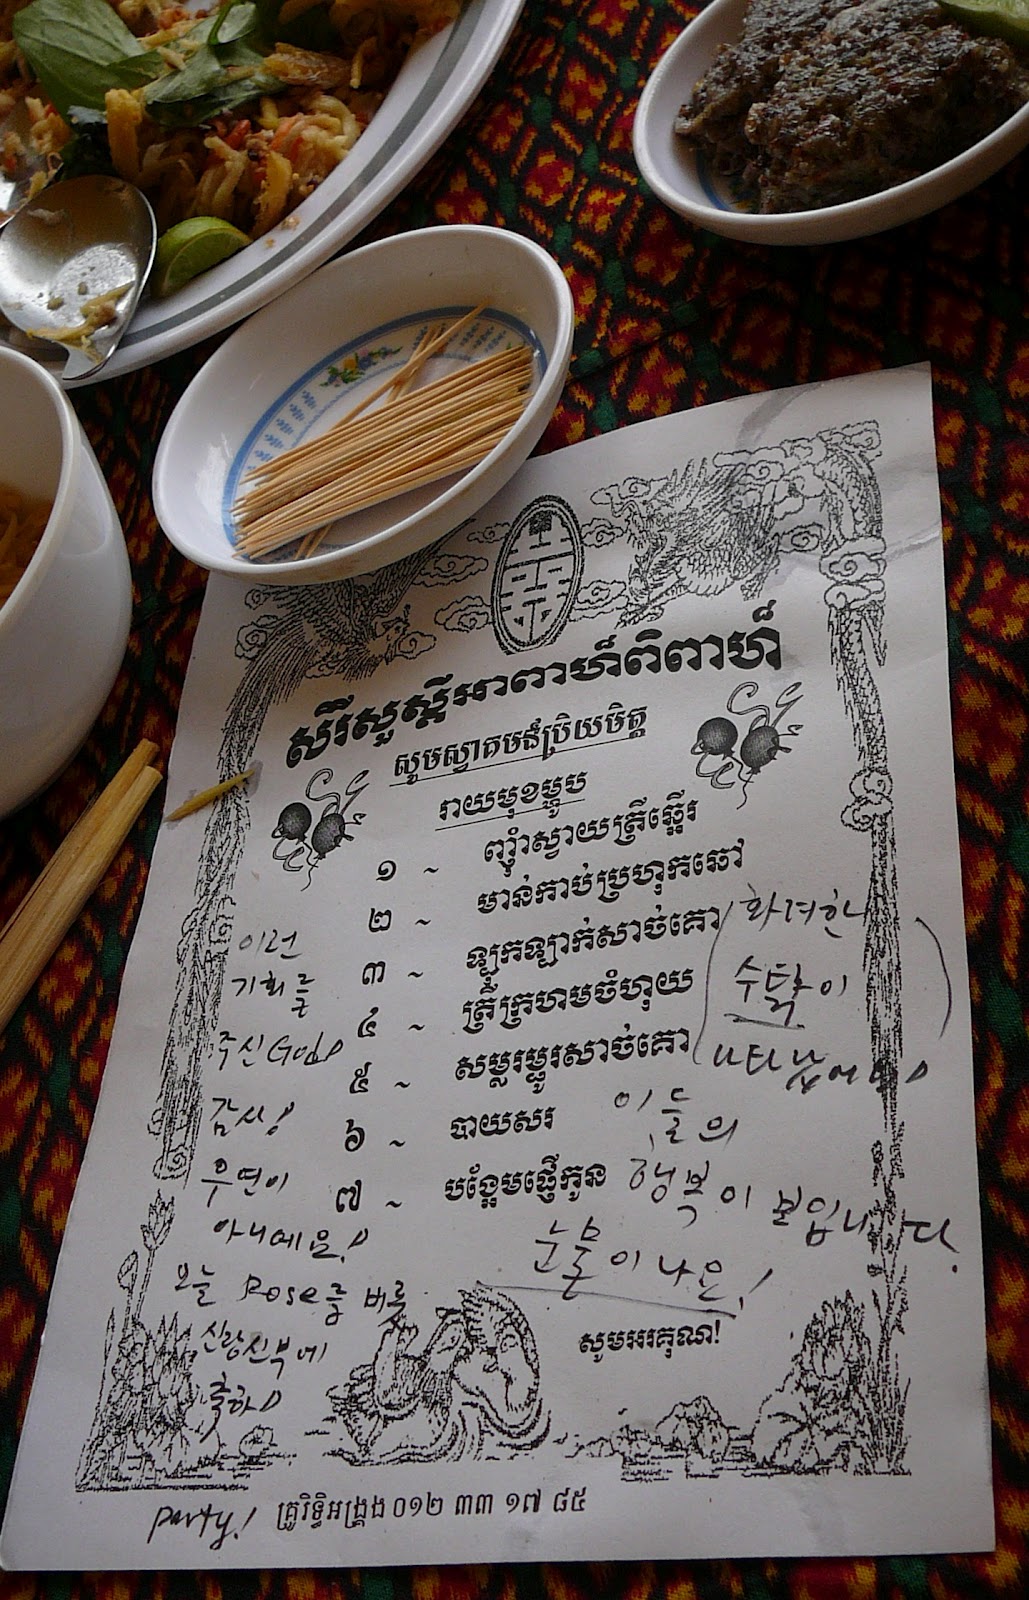 សិរីសួស្តីអាពាហ៍ពិពាហ៍
សូមស្វាគមន៍ប្រិយមិត្ត
រាយមុខម្ហូប
១ ~ ញ៉ាំស្វាយត្រីឆ្អើរ
២ ~ មាន់កាប់ប្រហុកឆៅ
៣ ~ ឡុកឡាក់សាច់គោ
៤ ~ ត្រីក្រហមចំហុយ
៥ ~ សម្លរម្ជូរសាច់គោ
៦ ~ បាយសរ
៧ ~ បង្អែមផ្ញើកូន
이런
기회를
주신 God
감사!
우연이
아니에요!
오늘 Pose를
신랑신부에
party!
수많이
이들의
행복이 보입니다.
눈물이 나온!
សូមអរគុណ!
គ្រូរិទ្ធិអង្រ្គង ០១២ ៣៣ ១៧ ៨៥